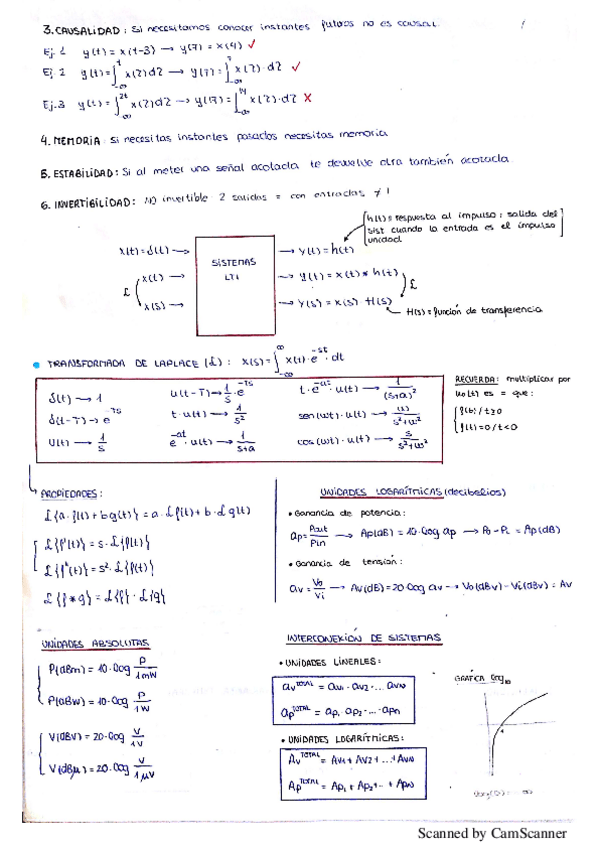 3. CAUSALIDAD: Si necesitamos conocer instantes futuros no es causal
Ej 1 y(t) = x(t-3) → y(7) = x(4) ✓
Ej 2 y(t) = ∫_{-∞}^{t} x(2) d2 → y(7) = ∫_{-∞}^{7} x(2)·d2 ✓
Ej.3 y(t) = ∫_{-∞}^{2t} x(2) d2 → y(7) = ∫_{-∞}^{14} x(2)·d2 X
4. MEMORIA: Si necesitas instantes pasados necesitas memoria
5. ESTABILIDAD: Si al meter una señal acotada te devuelve otra también acotada
6. INVERTIBILIDAD: NO invertible 2 salidas = con entradas ≠!
h(t) = respuesta al impulso: salida del
sist cuando la entrada es el impulso
unidad
x(t) = δ(t) → y(t) = h(t)
SISTEMAS
LTI
ℒ x(t) → y(t) = x(t) * h(t) ℒ
x(s) → Y(s) = X(s) · H(s)
H(s) = función de transferencia
TRANSFORMADA DE LAPLACE (ℒ): X(s) = ∫_{-∞}^{∞} x(t)·e^{-st}·dt
δ(t) → 1 u(t-T) → 1/s · e^{-Ts} t·e^{-at}·u(t) → 1/(s+a)²
δ(t-T) → e^{-Ts} t·u(t) → 1/s² sen(wt)·u(t) → w/(s²+w²)
u(t) → 1/s e^{-at}·u(t) → 1/(s+a) cos(wt)·u(t) → s/(s²+w²)
RECUERDA: multiplicar por
u(t) es = que:
f(t) / t≥0
f(t)=0 / t<0
PROPIEDADES:
ℒ{a·f(t)+bg(t)} = a·ℒf(t)+b·ℒg(t)
ℒ{f'(t)} = s·ℒ{f(t)}
ℒ{f²(t)} = s²·ℒ{f(t)}
ℒ{f*g} = ℒ{f}·ℒ{g}
UNIDADES LOGARÍTMICAS (decibelios)
• Ganancia de potencia:
ap = Pout/Pin → Ap(dB) = 10·log ap → Po - Pi = Ap(dB)
• Ganancia de tensión:
av = Vo/Vi → Av(dB) = 20·log av → Vo(dBv) - Vi(dBv) = Av
UNIDADES ABSOLUTAS
P(dBm) = 10·log P/1mW
P(dBw) = 10·log P/1W
V(dBv) = 20·log V/1V
V(dBµ) = 20·log V/1µV
INTERCONEXIÓN DE SISTEMAS
• UNIDADES LINEALES:
av^{TOTAL} = av1 · av2 · ... avN
ap^{TOTAL} = ap1 · ap2 · ... · apN
• UNIDADES LOGARÍTMICAS:
Av^{TOTAL} = Av1 + Av2 + ... + AvN
Ap^{TOTAL} = Ap1 + Ap2 + ·· + ApN
GRÁFICA log₁₀
log(0) = -∞
Scanned by CamScanner